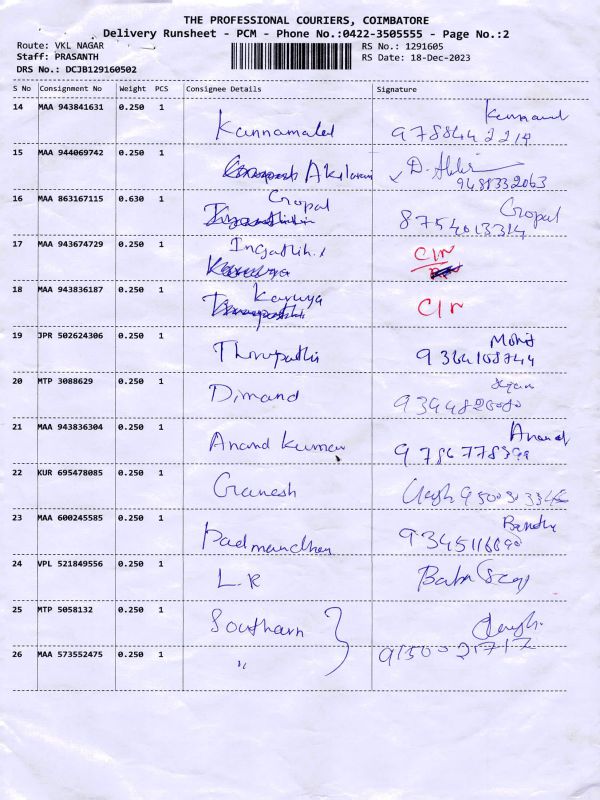 THE PROFESSIONAL COURIERS, COIMBATORE
Delivery Runsheet - PCM - Phone No.:0422-3505555 - Page No.:2
Route: VKL NAGAR RS No.: 1291605
Staff: PRASANTH RS Date: 18-Dec-2023
DRS No.: DCJB129160502
S No Consignment No Weight PCS Consignee Details Signature
14 MAA 943841631 0.250 1
Kannamal 9788442219
15 MAA 944069742 0.250 1
D.
9488332063
16 MAA 863167115 0.630 1
Gopal Gopal
8754013314
17 MAA 943674729 0.250 1
C/n
18 MAA 943836187 0.250 1
Karuya C/n
19 JPR 502624306 0.250 1
Mohd
Thirupathi 9364108744
20 MTP 3088629 0.250 1
Dimand
21 MAA 943836304 0.250 1
Anand
Anand Kumar
22 KUR 695478085 0.250 1
Ganesh
23 MAA 600245585 0.250 1
24 VPL 521849556 0.250 1
L.R Babu
25 MTP 5058132 0.250 1
Southarn
26 MAA 573552475 0.250 1
" 9150021717